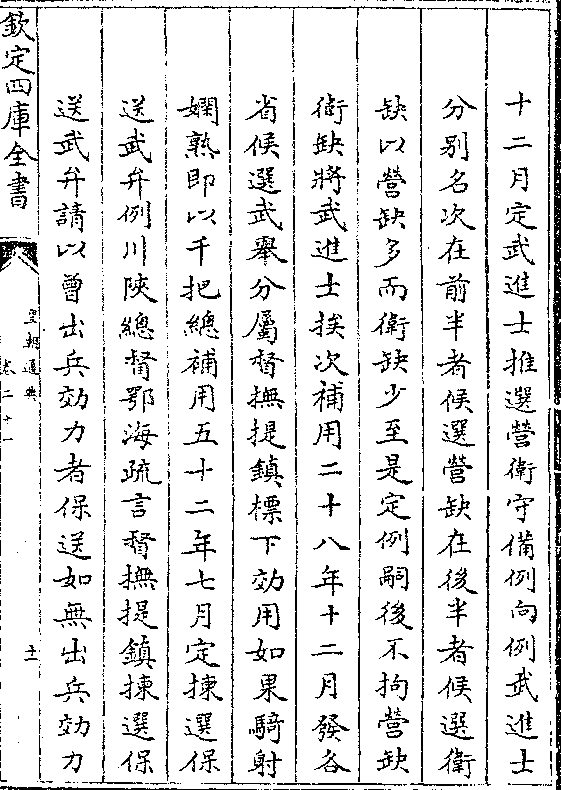 十二月定武進士推選營衛守備例向例武進士
分別名次在前半者候選營缺在後半者候選衛
缺以營缺多而衛缺少至是定例嗣後不拘營缺
衛缺將武進士挨次補用二十八年十二月發各
省候選武舉分屬督撫提鎮標下効用如果騎射
嫻熟即以千把總補用五十二年七月定揀選保
送武弁例川陝總督鄂海疏言督撫提鎮揀選保
送武弁請以曾出兵効力者保送如無出兵効力
欽定四庫全書
皇朝通典
卷二十一
十一